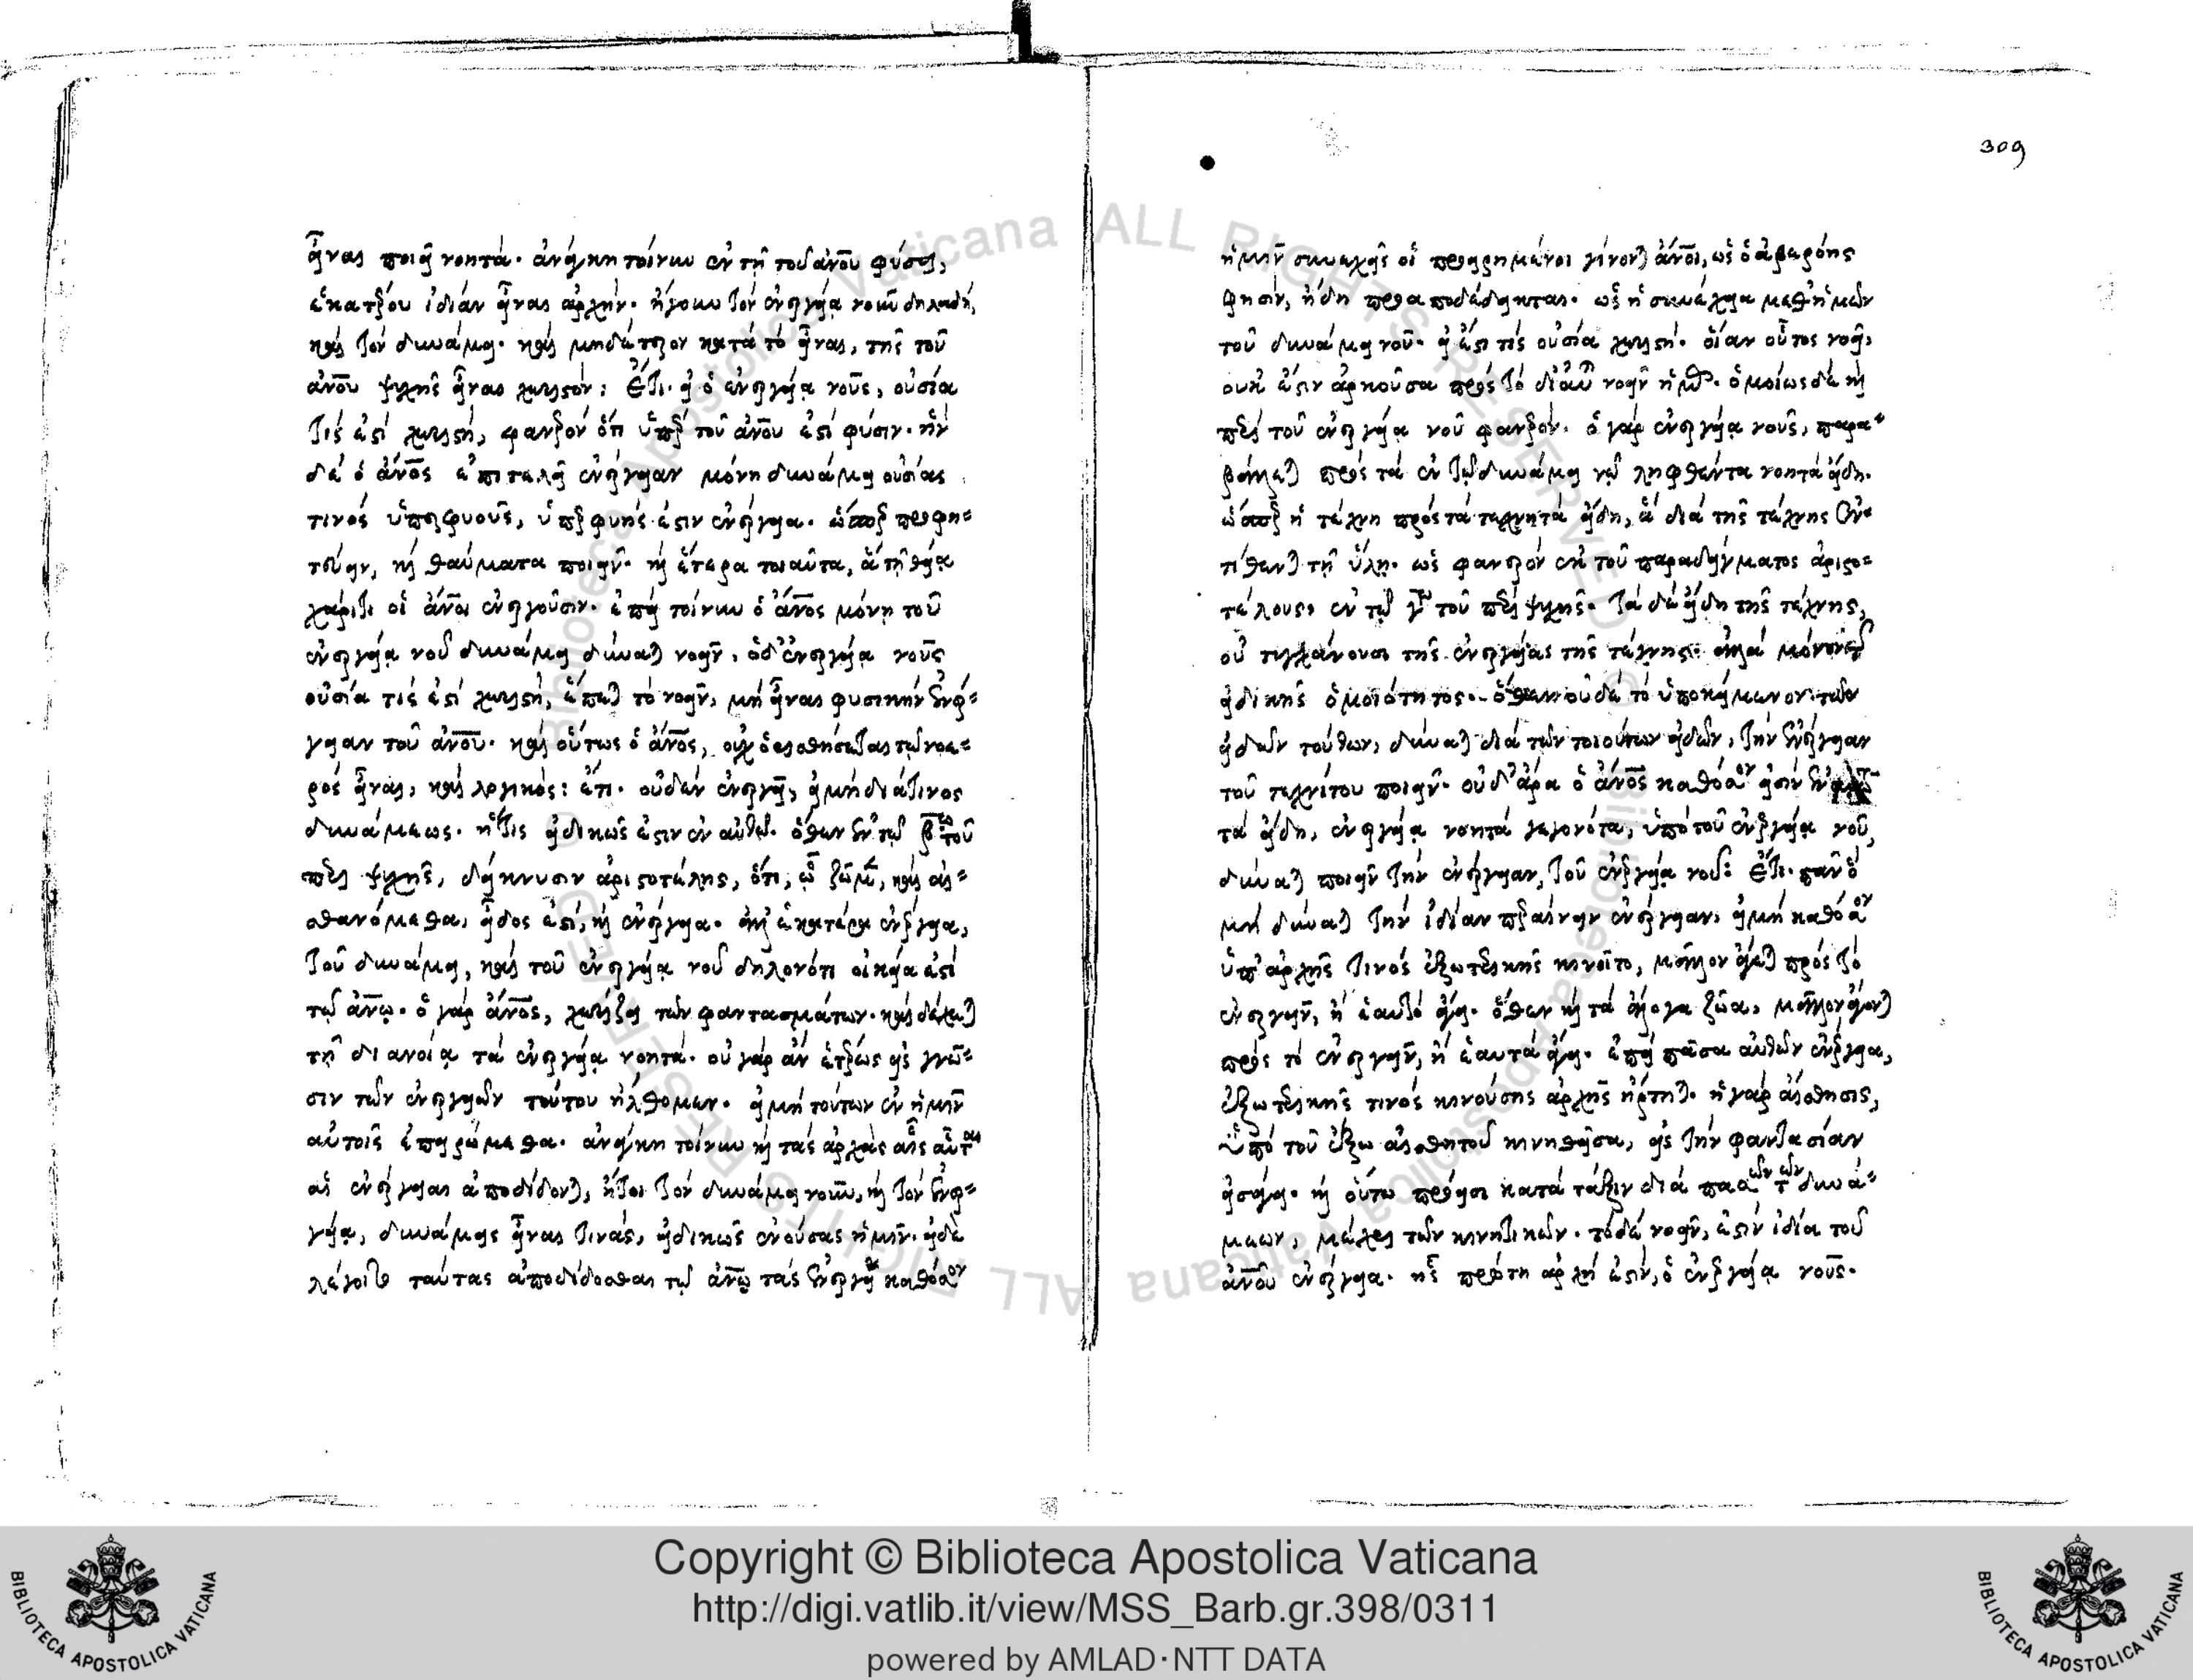 εἶναι ποιεῖ νοητά. ἀνάγκη τοίνυν ἐν τῇ τοῦ ἀνου φύσει,
ἑκατέρου ἰδίαν εἶναι ἀρχήν. ἤγουν τὸν ἐνεργείᾳ νοῦν δηλαδή,
καὶ τὸν δυνάμει. καὶ μηδέτερον κατὰ τὸ εἶναι, τῆς τοῦ
ἀνου ψυχῆς εἶναι χωριστόν: Ἔτι. εἰ ὁ ἐνεργείᾳ νοῦς, οὐσία
τίς ἐστι χωριστή, φανερὸν ὅτι ὑπὲρ τοῦ ἀνου ἐστὶ φύσιν. ἣν
δὲ ὁ ἀνος ἐπιτελεῖ ἐνέργειαν μόνῃ δυνάμει οὐσίας
τινὸς ὑπερφυοῦς, ὑπερφυής ἐστιν ἐνέργεια. ὥσπερ προφη=
τεύειν, καὶ θαύματα ποιεῖν. καὶ ἕτερα τοιαῦτα, ἃ τῇ θείᾳ
χάριτι οἱ ἀνοι ἐνεργοῦσιν. ἐπεὶ τοίνυν ὁ ἀνος μόνῃ τοῦ
ἐνεργείᾳ νοῦ δυνάμει δύναται νοεῖν, ὁ δ' ἐνεργείᾳ νοῦς
οὐσία τίς ἐστι χωριστή, ἕπεται τὸ νοεῖν, μὴ εἶναι φυσικὴν ἐνέρ=
γειαν τοῦ ἀνου. καὶ οὕτως ὁ ἀνος, οὐχ ὁρισθήσεται τῷ νοε=
ρὸς εἶναι, καὶ λογικός: ἔτι. οὐδὲν ἐνεργεῖ, εἰ μὴ διά τινος
δυνάμεως. ἥτις εἰδικῶς ἐστιν ἐν αὐτῷ. ὅθεν ἐν τῷ βω τοῦ
περὶ ψυχῆς, δείκνυσιν ἀριστοτέλης, ὅτι, ᾧ ζῶμεν, καὶ αἰ=
σθανόμεθα, εἶδος ἐστί, καὶ ἐνέργεια. ἀλλ' ἑκατέρα ἐνέργεια,
τοῦ δυνάμει, καὶ τοῦ ἐνεργείᾳ νοῦ δηλονότι οἰκεία ἐστὶ
τῷ ἀνῳ. ὁ γὰρ ἀνος, χωρίζει τῶν φαντασμάτων. καὶ δέχεται
τῇ διανοίᾳ τὰ ἐνεργείᾳ νοητά. οὐ γὰρ ἂν ἑτέρως εἰς γνῶ=
σιν τῶν ἐνεργειῶν τούτου ἤλθομεν. εἰ μὴ τούτων ἐν ἡμῖν
αὐτοῖς ἐπειρώμεθα. ἀνάγκη τοίνυν καὶ τὰς ἀρχὰς αἷς αὗται
αἱ ἐνέργειαι ἀποδίδονται, ἤτοι τὸν δυνάμει νοῦν, καὶ τὸν ἐνερ=
γείᾳ, δυνάμεις εἶναι τινάς, εἰδικῶς ἐνούσας ἡμῖν. εἰ δὲ
λέγοιτο ταύτας ἀποδίδοσθαι τῷ ἀνῳ τὰς ἐνεργείας καθόσον
309
ἡμῖν συνεχεῖς οἱ προειρημένοι γίνονται ἀνοι, ὡς ὁ ἀβερόης
φησίν, ἤδη προαποδέδεικται. ὡς ἡ συνέχεια μεθ' ἡμῶν
τοῦ δυνάμει νοῦ. εἰ ἔστι τὶς οὐσία χωριστή. οἵαν οὗτος νοεῖ,
οὐκ ἔστιν ἀρκοῦσα πρὸς τὸ δι' αὐτοῦ νοεῖν ἡμᾶς. ὁμοίως δὲ καὶ
περὶ τοῦ ἐνεργείᾳ νοῦ φανερόν. ὁ γὰρ ἐνεργείᾳ νοῦς, παρα=
βάλλεται πρὸς τὰ ἐν τῷ δυνάμει νῷ ληφθέντα νοητὰ εἴδη.
ὥσπερ ἡ τέχνη πρὸς τὰ τεχνητὰ εἴδη, ἃ διὰ τῆς τέχνης ἐν=
τίθενται τῇ ὕλῃ. ὡς φανερὸν ἐκ τοῦ παραδείγματος ἀριστο=
τέλους ἐν τῷ γω τοῦ περὶ ψυχῆς. τὰ δὲ εἴδη τῆς τέχνης,
οὐ τυγχάνουσι τῆς ἐνεργείας τῆς τέχνης. ἀλλὰ μόνης
εἰδικῆς ὁμοιότητος. ὅθεν οὐδὲ τὸ ὑποκείμενον τῶν
εἰδῶν τούτων, δύναται διὰ τῶν τοιούτων εἰδῶν, τὴν ἐνέργειαν
τοῦ τεχνίτου ποιεῖν. οὐδ' ἄρα ὁ ἀνος καθόσον εἰσὶν ἐν
τὰ εἴδη, ἐνεργείᾳ νοητὰ γεγονότα, ὑπὸ τοῦ ἐνεργείᾳ νοῦ,
δύναται ποιεῖν τὴν ἐνέργειαν, τοῦ ἐνεργείᾳ νοῦ: Ἔτι. πᾶν ὃ
μὴ δύναται τὴν ἰδίαν περαίνειν ἐνέργειαν, εἰ μὴ καθόσον
ὑπ' ἀρχῆς τινὸς ἐξωτερικῆς κινοῖτο, μᾶλλον ἄγεται πρὸς τὸ
ἐνεργεῖν, ἢ ἑαυτὸ ἄγει. ὅθεν καὶ τὰ ἄλογα ζῶα, μᾶλλον ἄγονται
πρὸς τὸ ἐνεργεῖν, ἢ ἑαυτὰ ἄγει. ἐπεὶ πᾶσα αὐτῶν ἐνέργεια,
ἐξωτερικῆς τινὸς κινούσης ἀρχῆς ἤρτηται. ἡ γὰρ αἴσθησις,
ὑπὸ τοῦ ἔξω αἰσθητοῦ κινηθεῖσα, εἰς τὴν φαντασίαν
εἰσάγει. καὶ οὕτω πρόεισι κατὰ τάξιν διὰ πασῶν τῶν δυνά=
μεων, μέχρι τῶν κινητικῶν. τὸ δὲ νοεῖν, ἐστὶν ἰδία τοῦ
ἀνου ἐνέργεια. ἧς πρώτη ἀρχή ἐστιν, ὁ ἐνεργείᾳ νοῦς.
Copyright © Biblioteca Apostolica Vaticana
http://digi.vatlib.it/view/MSS_Barb.gr.398/0311
powered by AMLAD·NTT DATA
BIBLIOTECA APOSTOLICA VATICANA
BIBLIOTECA APOSTOLICA VATICANA